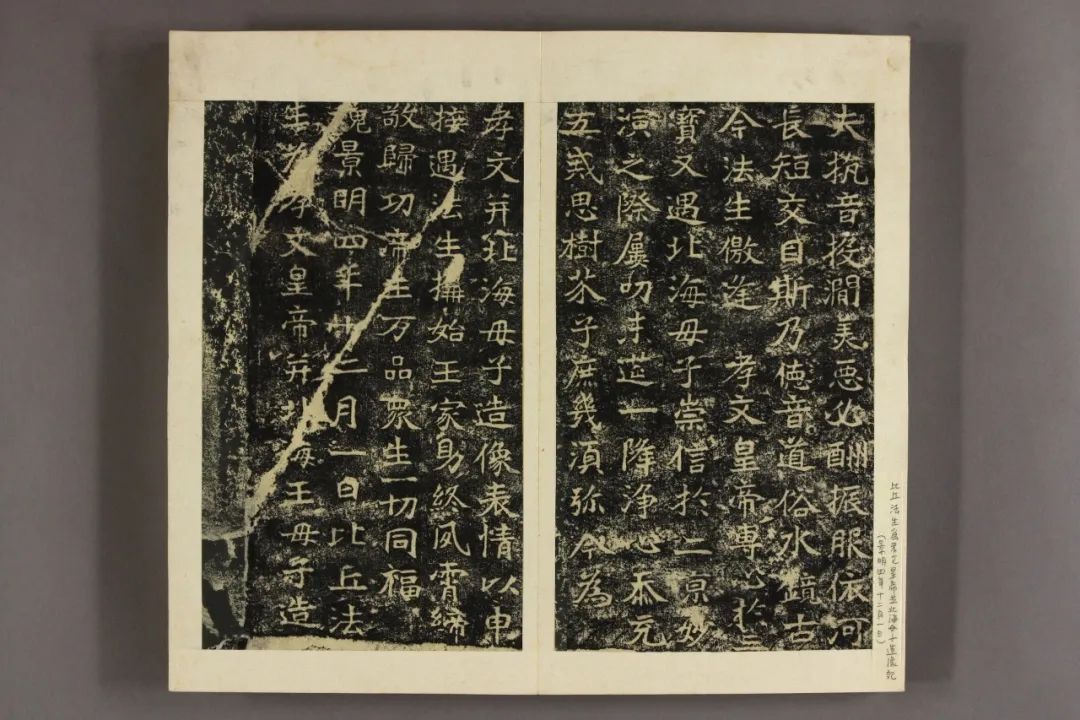 夫抗音投澗美惡必酬振服依河
長短交目斯乃德音道俗水鏡古
今法生儌逢 孝文皇帝專心於三
寶又遇北海母子崇信於二京妙
演之際屢叨末筵一降淨心忝充
五戒思樹芥子庶幾須弥今為
孝文并北海母子造像表情以申
接遇法生構始王家助終夙霄締
敬歸功帝王万品眾生一切同福
魏景明四年十二月一日比丘法
生為孝文皇帝并北海王母子造
比丘法生為孝文皇帝並北海母子造像記
(景明四年十二月一日)